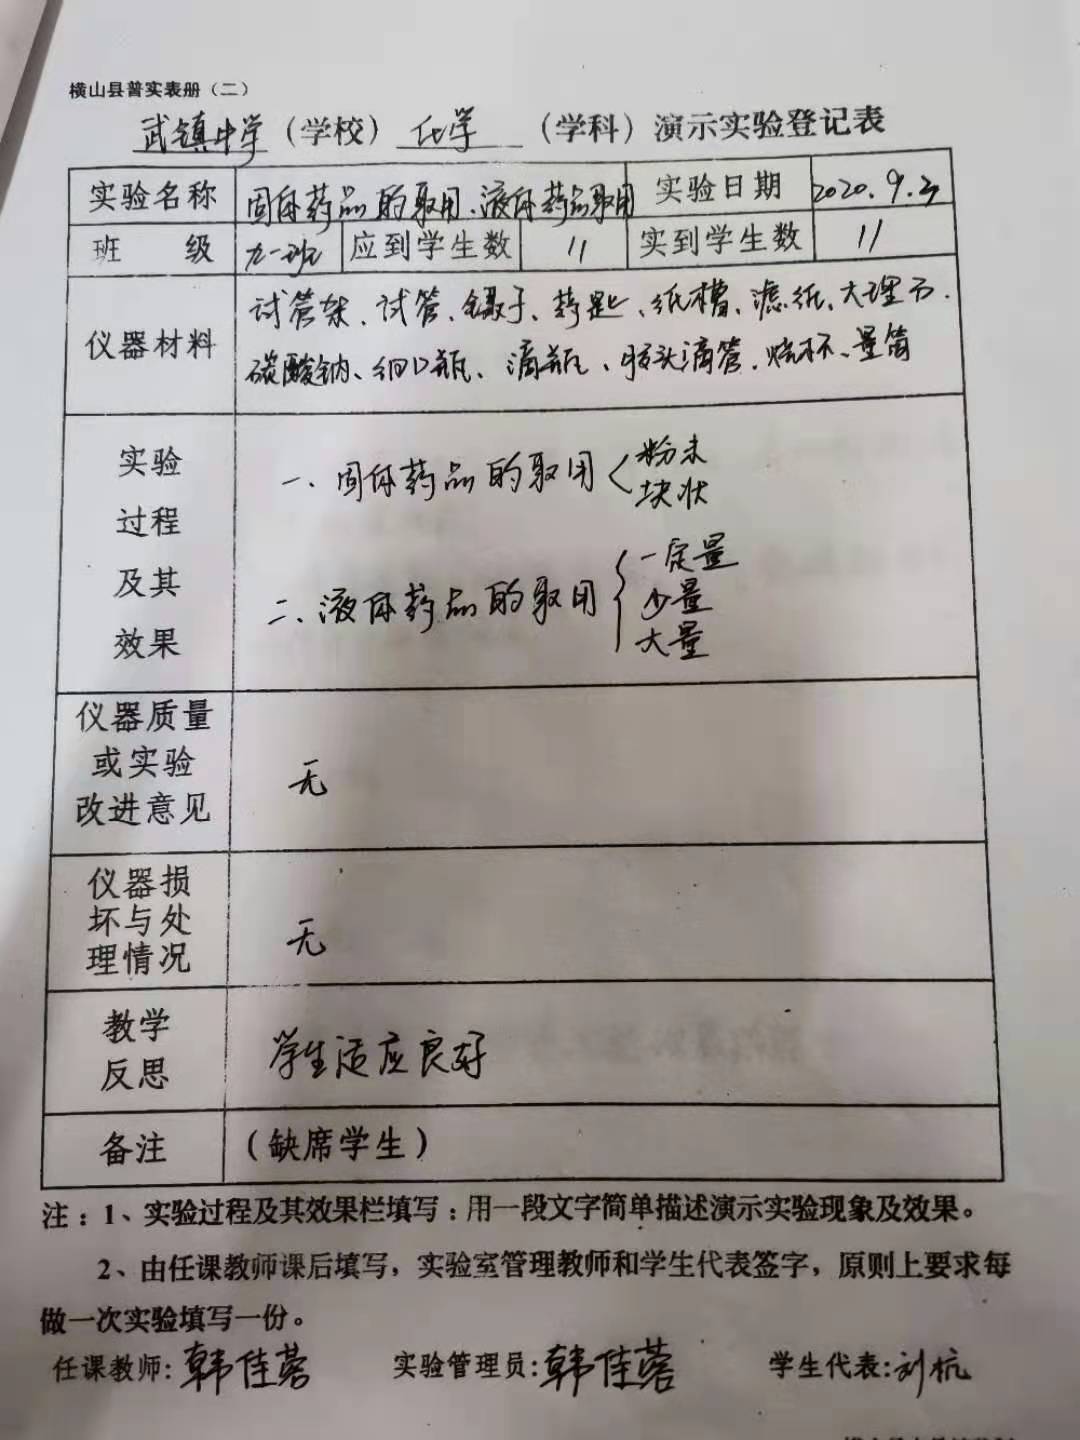 横山县普实表册（二）
武镇中学（学校）化学（学科）演示实验登记表
实验名称 固体药品的取用、液体药品取用 实验日期 2020.9.
班级 九一班 应到学生数 11 实到学生数 11
试管架、试管、镊子、药匙、纸槽、滤纸、大理石、
仪器材料
碳酸钠、细口瓶、滴瓶、胶头滴管、烧杯、量筒
实验
过程
及其
效果
一、固体药品的取用 粉末
块状
二、液体药品的取用 一定量
少量
大量
仪器质量
或实验
改进意见
无
仪器损
坏与处
理情况
无
教学
反思
学生适应良好
备注 （缺席学生）
注：1、实验过程及其效果栏填写：用一段文字简单描述演示实验现象及效果。
2、由任课教师课后填写，实验室管理教师和学生代表签字，原则上要求每
做一次实验填写一份。
任课教师：韩佳蓉 实验管理员：韩佳蓉 学生代表：刘杭